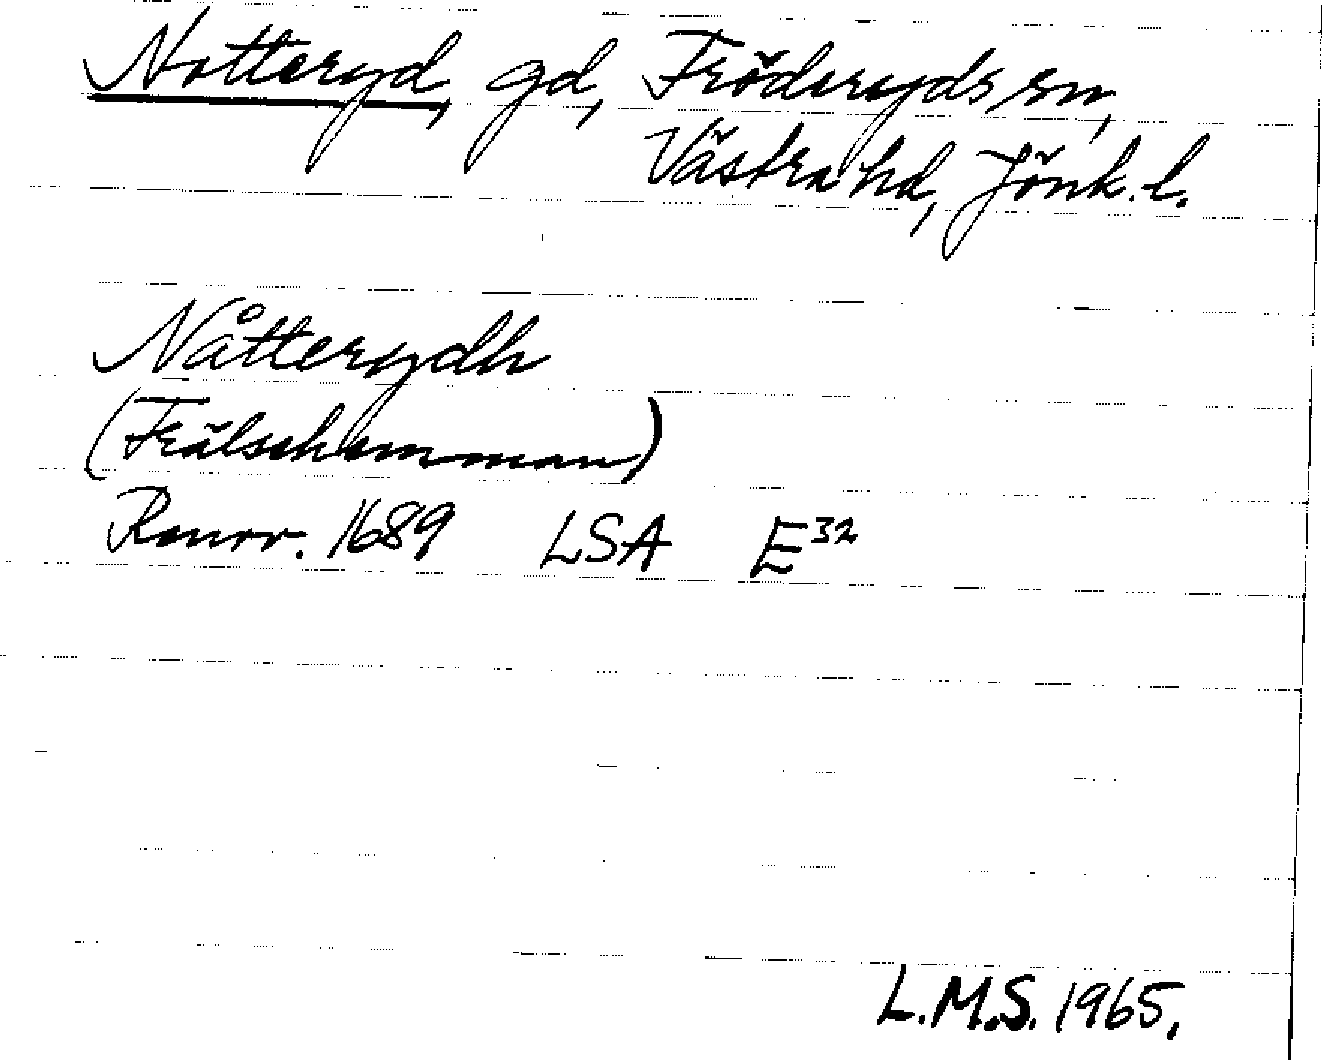 Notteryd, gd, Fröderyds sn,
Västra hd, Jönk. l.
Nåtterydh
(Frälsehemman)
Renov. 1689 LSA E32
L.M.S. 1965.